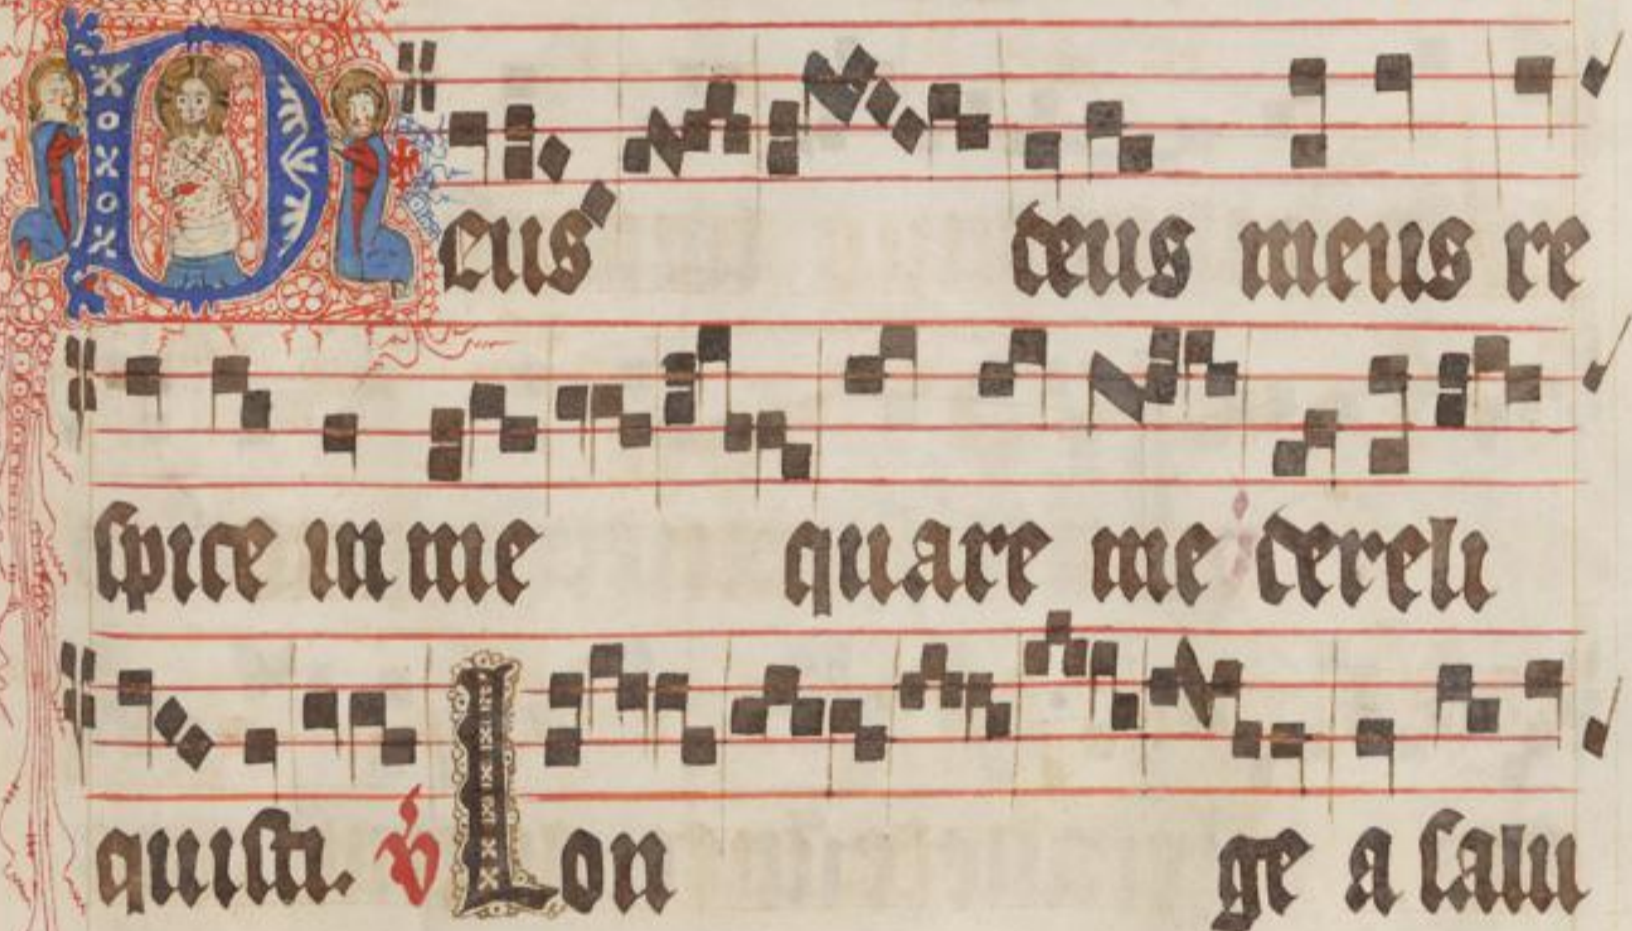 Deus deus meus re
spice in me quare me dereli
quisti. v Lon ge a salu